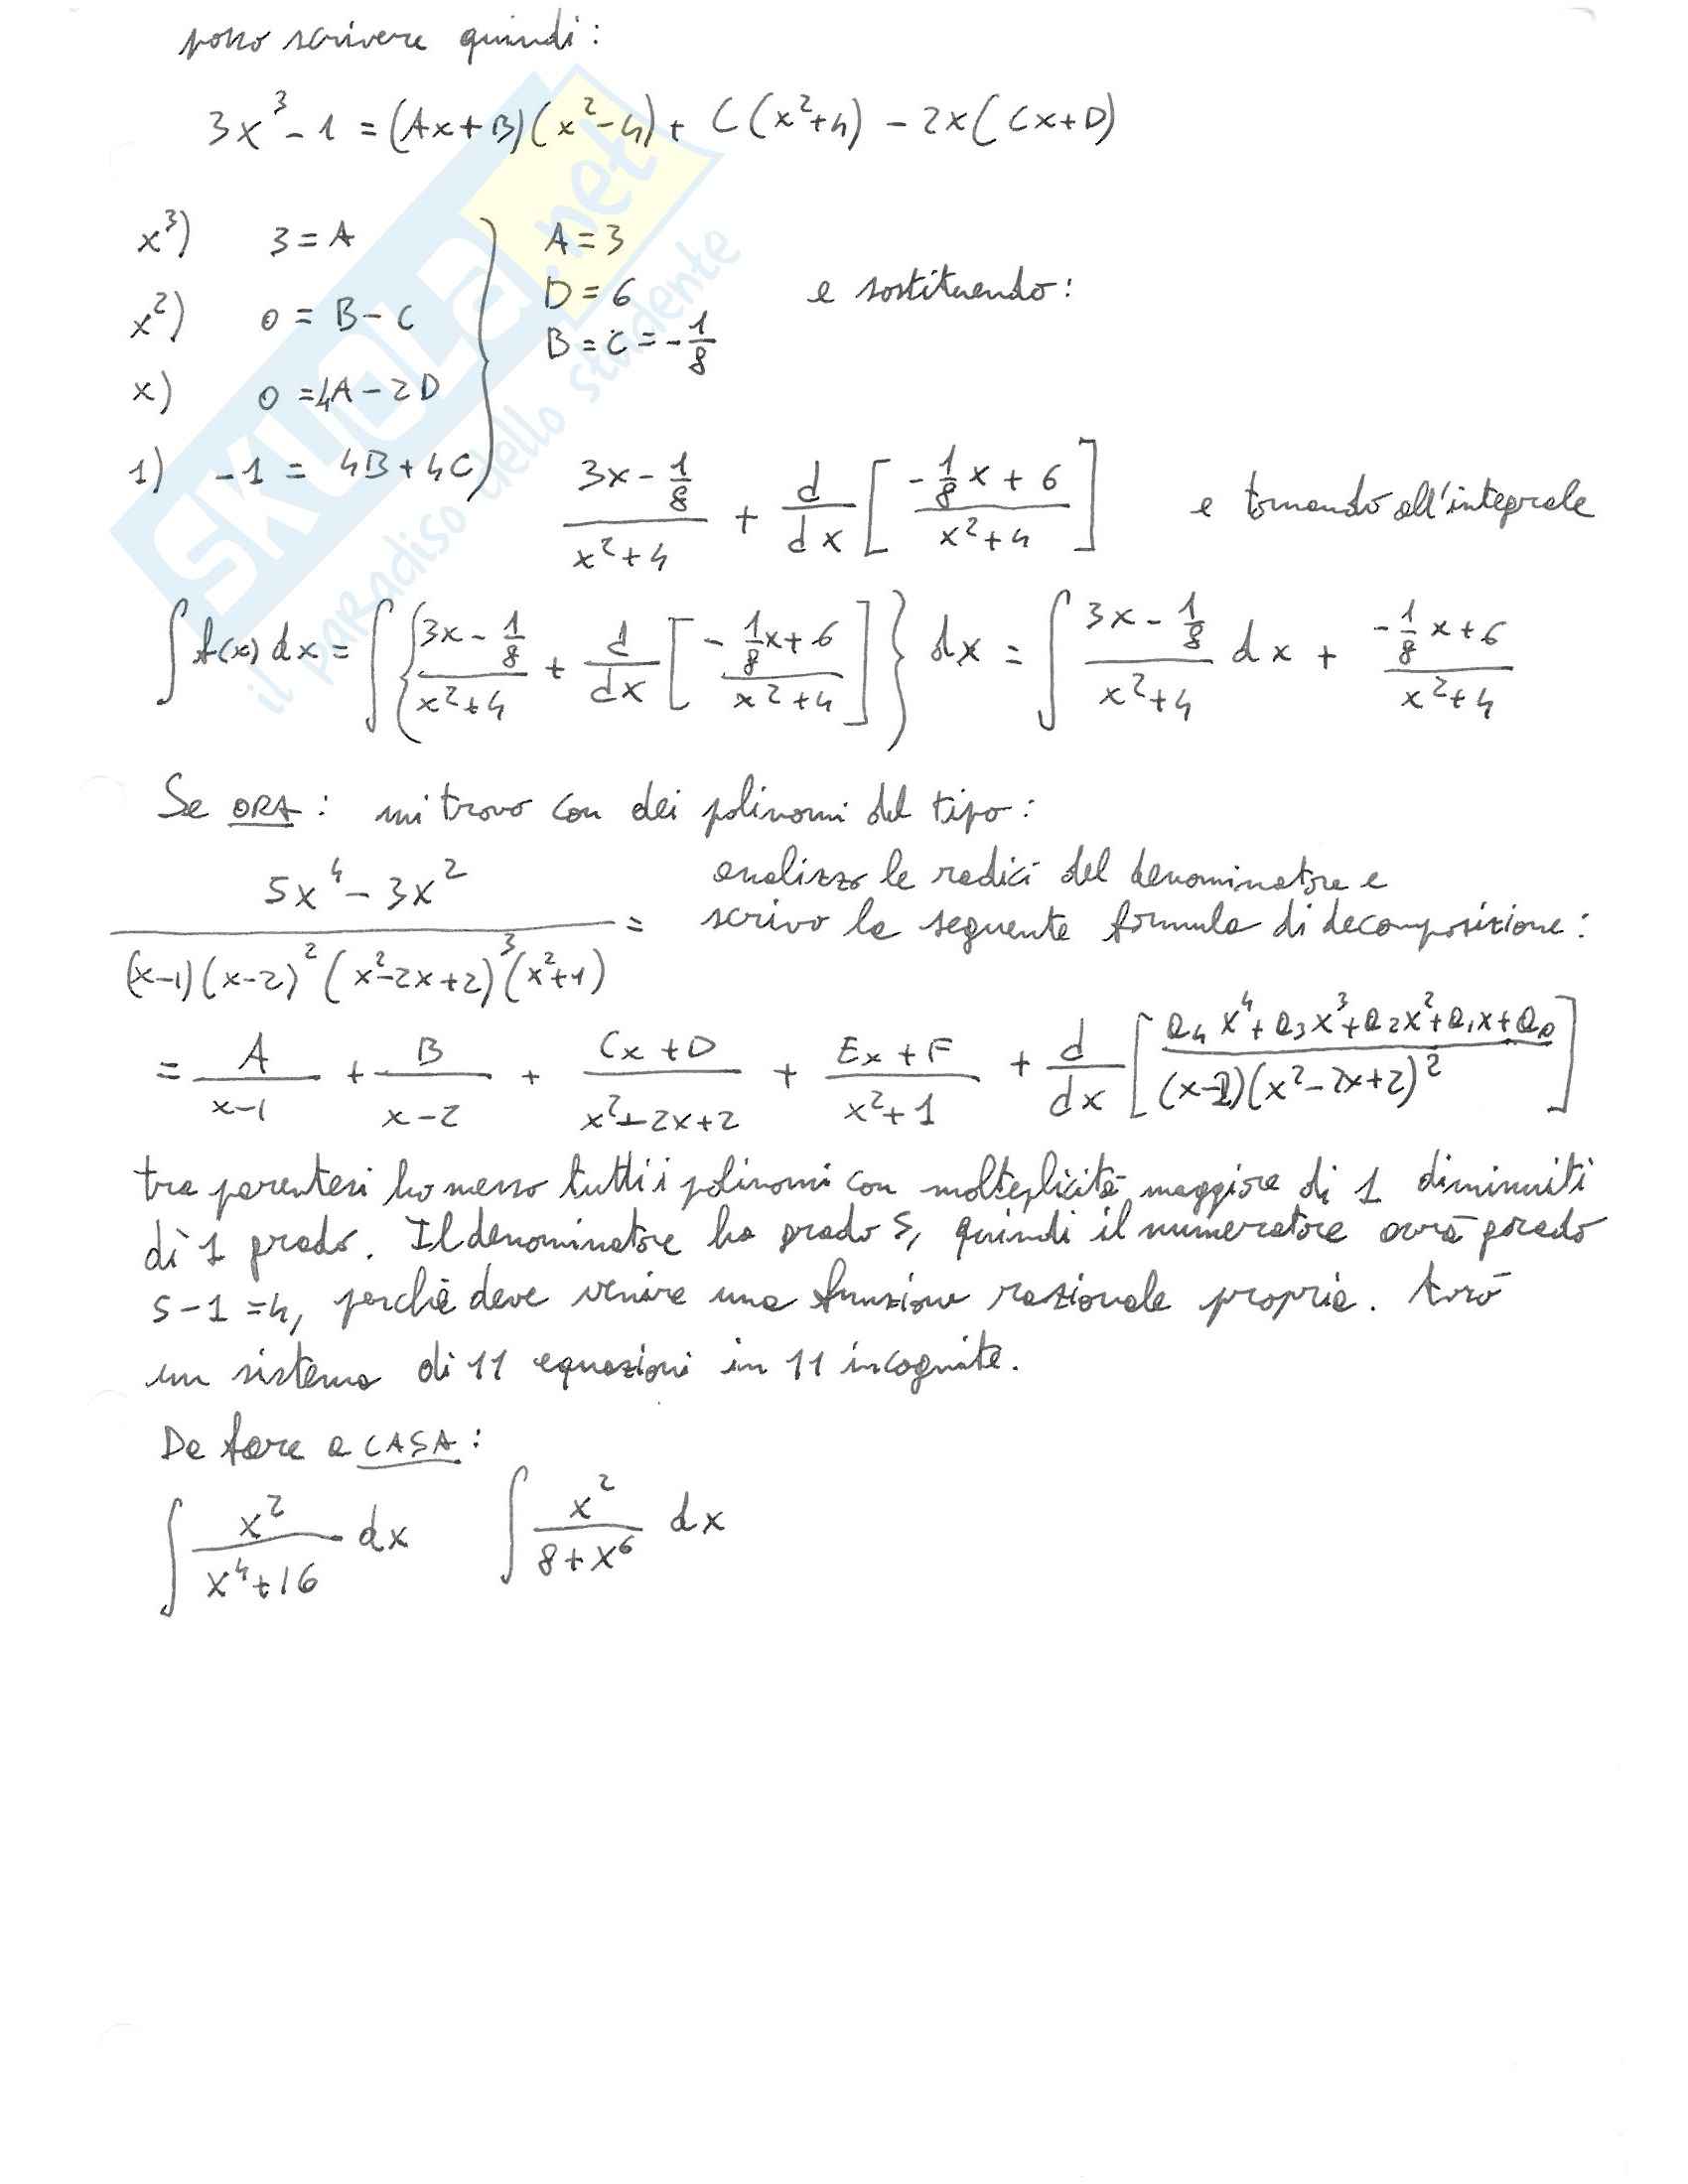 posso scrivere quindi:
3x³ - 1 = (Ax+B)(x²-4) + C(x²+4) - 2x(Cx+D)
x³) 3 = A
x²) 0 = B - C
x) 0 = 4A - 2D
1) -1 = 4B + 4C
A = 3
D = 6
B = C = -1/8
e sostituendo:
(3x - 1/8)/(x²+4) + d/dx [(-1/8 x + 6)/(x²+4)] e tornando all'integrale
∫ f(x) dx = ∫ {(3x - 1/8)/(x²+4) + d/dx [(-1/8 x + 6)/(x²+4)]} dx = ∫ (3x - 1/8)/(x²+4) dx + (-1/8 x + 6)/(x²+4)
Se ORA: mi trovo con dei polinomi del tipo:
(5x⁴ - 3x²)/((x-1)(x-2)²(x²-2x+2)³(x²+1)) =
analizzo le radici del denominatore e
scrivo la seguente formula di decomposizione:
= A/(x-1) + B/(x-2) + (Cx+D)/(x²-2x+2) + (Ex+F)/(x²+1) + d/dx [(a₄x⁴+a₃x³+a₂x²+a₁x+a₀)/((x-2)(x²-2x+2)²)]
tra parentesi ho messo tutti i polinomi con molteplicità maggiore di 1 diminuiti
di 1 grado. Il denominatore ha grado 5, quindi il numeratore avrà grado
5-1=4, perchè deve venire una funzione razionale propria. Avrò
un sistema di 11 equazioni in 11 incognite.
Da fare a CASA:
∫ x²/(x⁴+16) dx ∫ x²/(8+x⁶) dx
SKUOLA.net
il paradiso dello studente